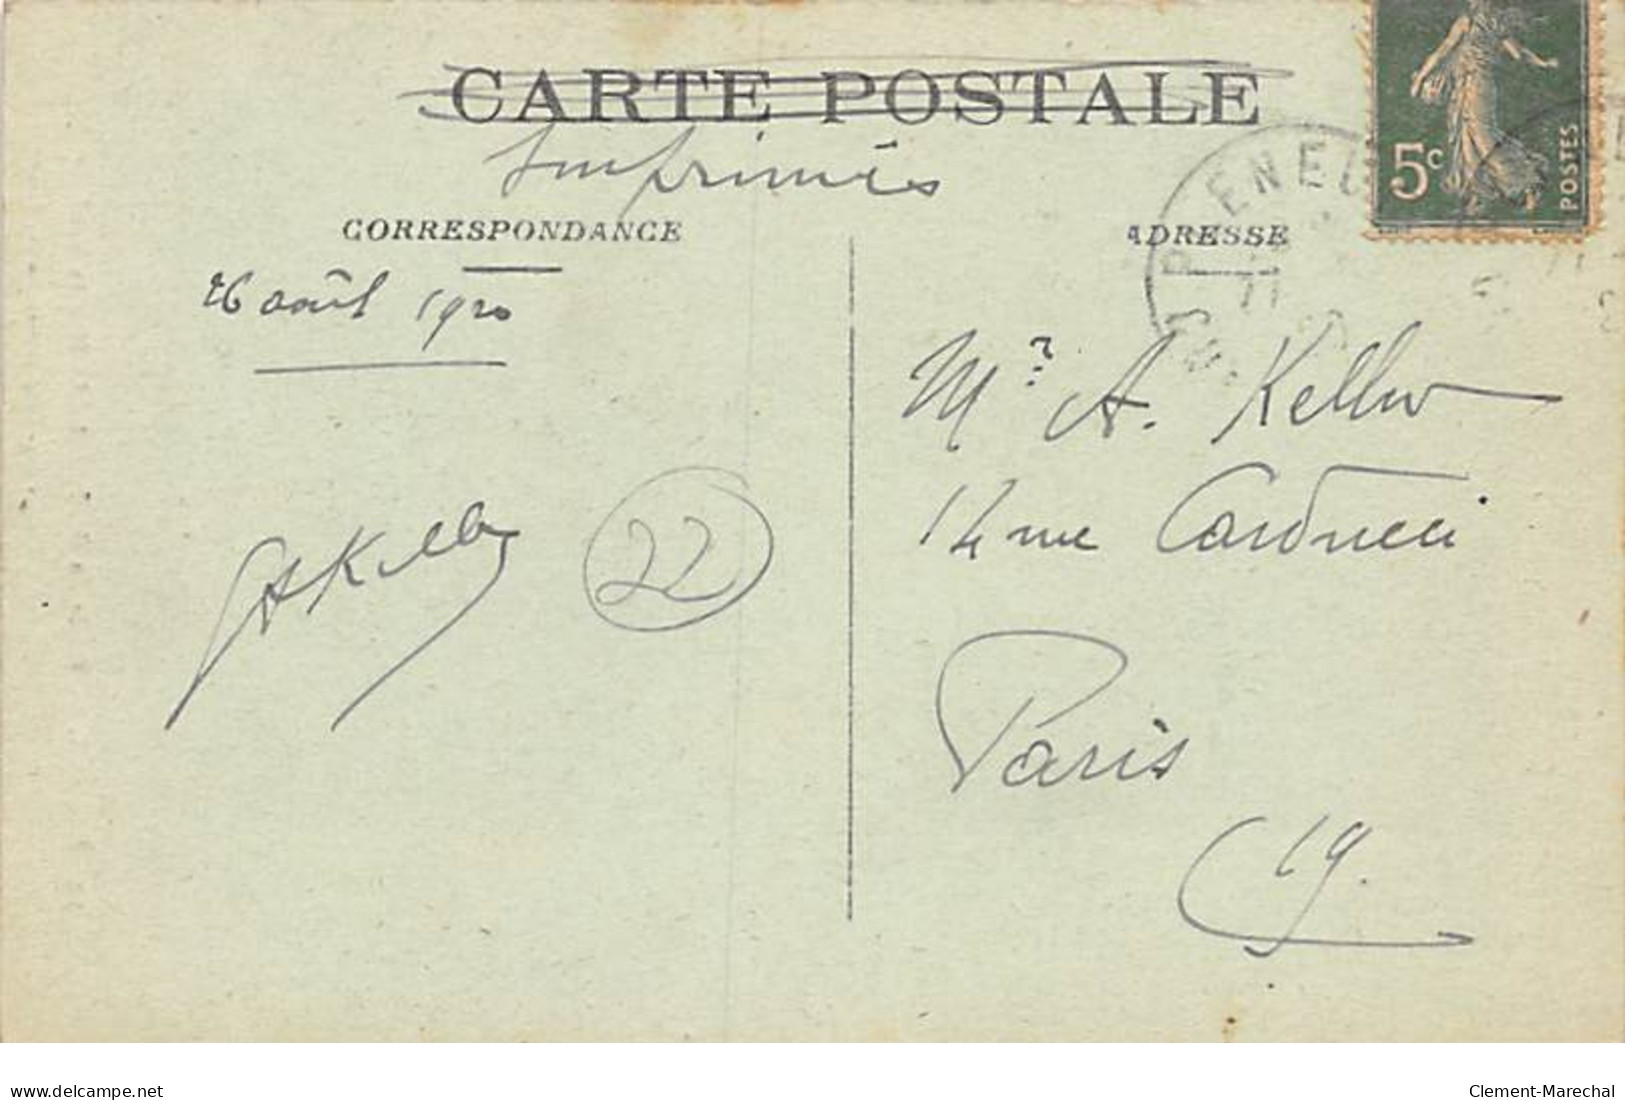 CARTE POSTALE
Imprimés
CORRESPONDANCE
ADRESSE
5c
POSTES
26 août 1920
Mr A. Keller
14 rue Carducci
Paris
19.
AKeller
22
delcampe.net
Clement-Marechal